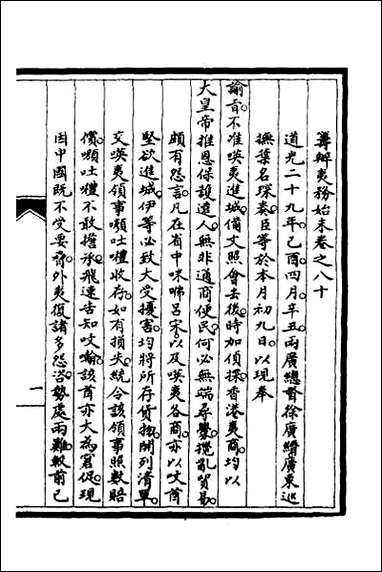 籌辦夷務始末卷之八十
道光二十九年己酉四月辛丑兩廣總督徐廣縉廣東巡
撫葉名琛奏臣等於本月初九日以現奉
諭旨不准嘆夷進城備文照會去後時加偵探香港夷商均以
大皇帝推恩保護遠人無非通商便民何必無端尋釁擾亂貿易
頗有怨言凡在省中咪咈呂宋以及嘆夷各商亦以文酋
堅欲進城伊等必致大受擾害均將所存貨物開列清單
交嘆夷領事嚈吐㘓收存如有損失統令該領事照數賠
償嚈吐㘓不敢擔承飛速告知咬㘚該酋亦大為窘促現
因中國既不受要脅外夷復諸多怨咨勢處兩難較前已
一